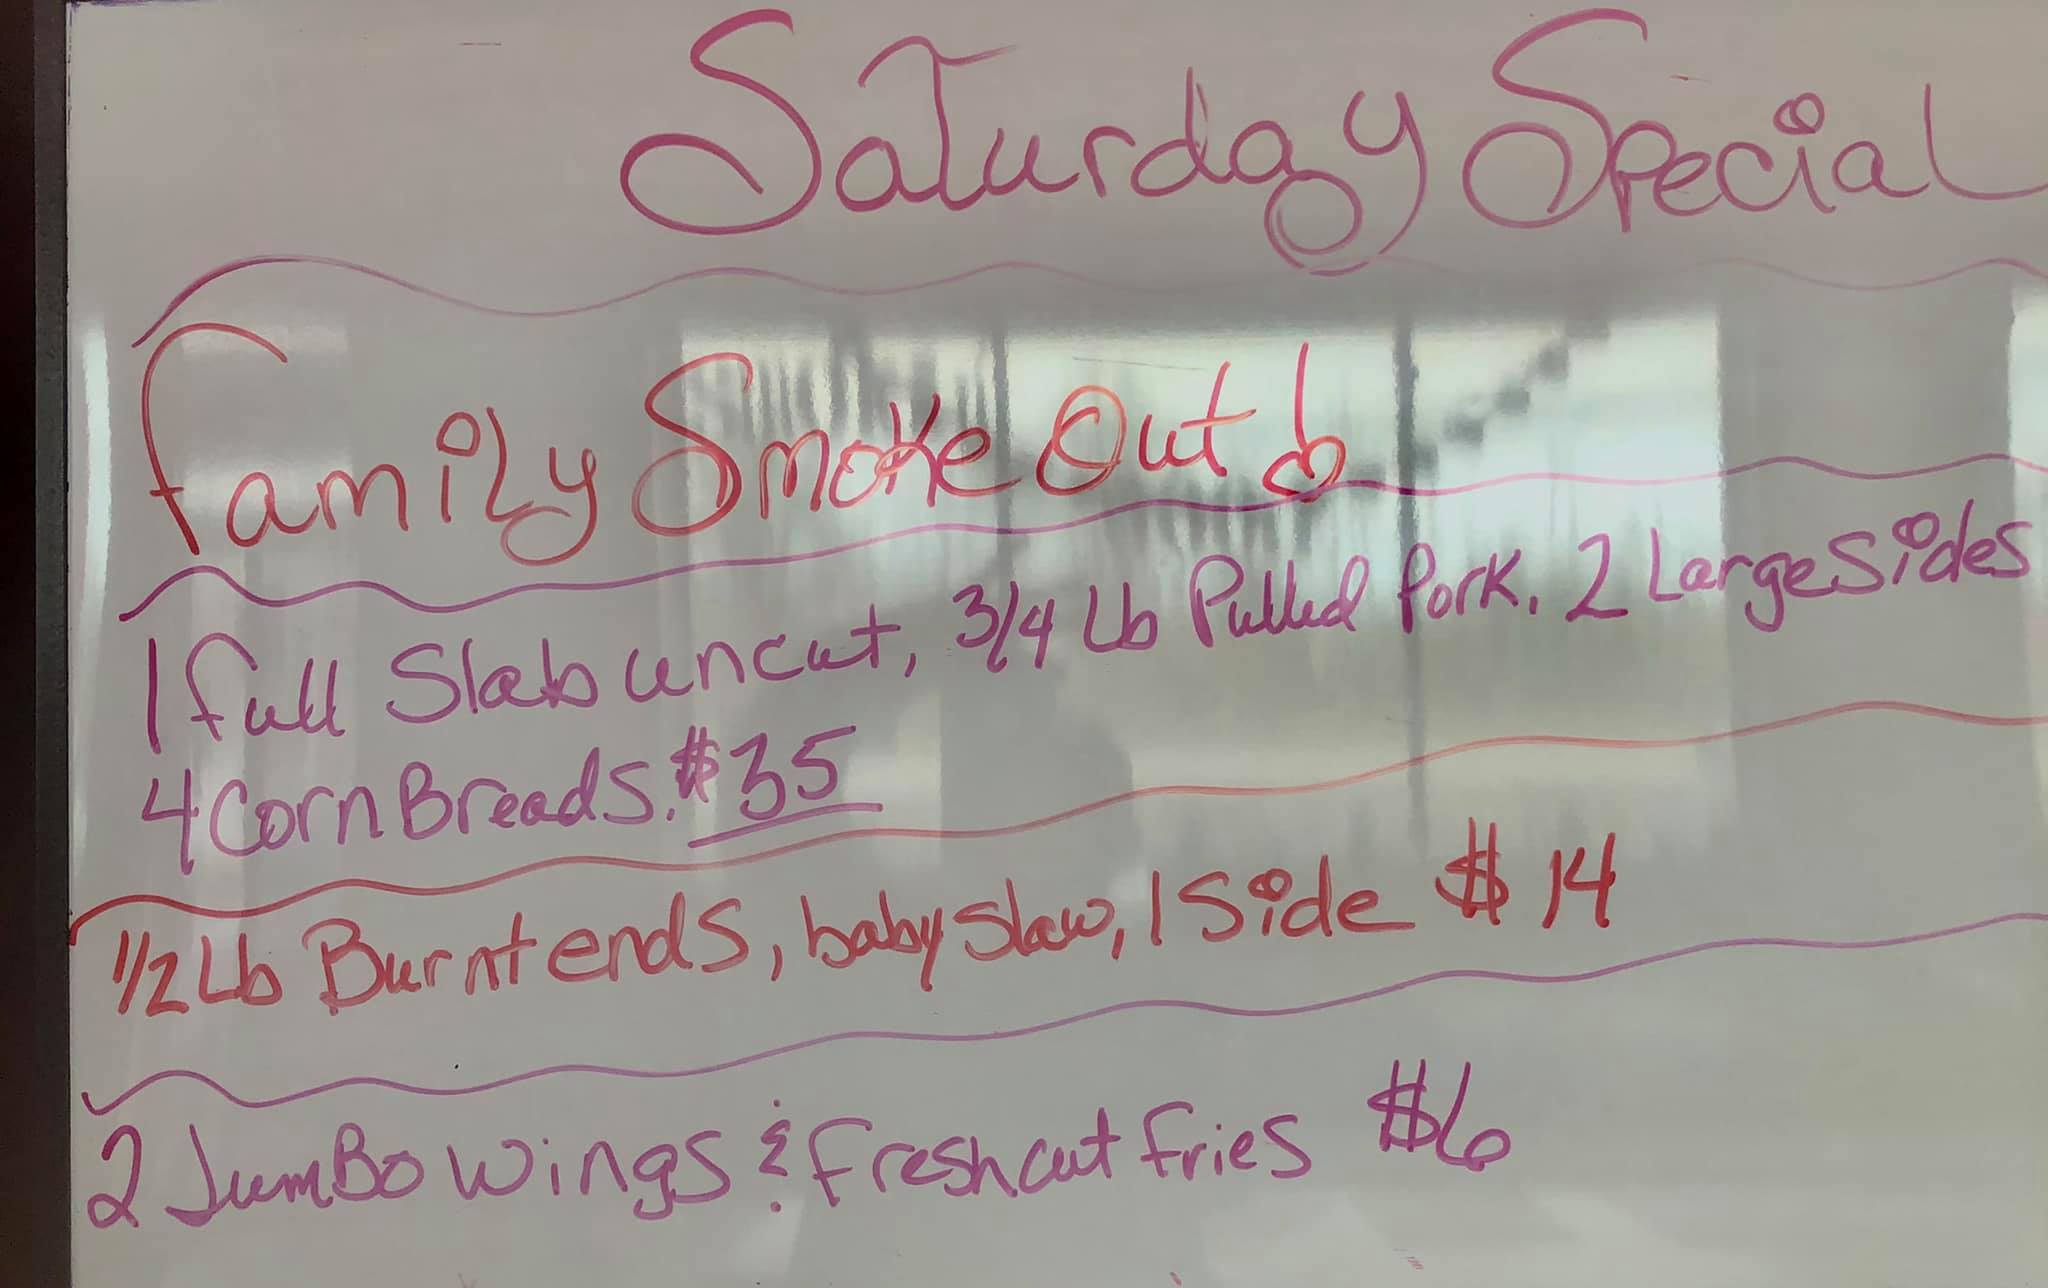 Saturday Special
Family Smoke Out!
1 full Slab uncut, 3/4 Lb Pulled Pork. 2 Large Sides
4 Corn Breads. $35
1/2 Lb Burnt ends, baby slaw, 1 Side $14
2 Jumbo Wings & fresh cut fries $6